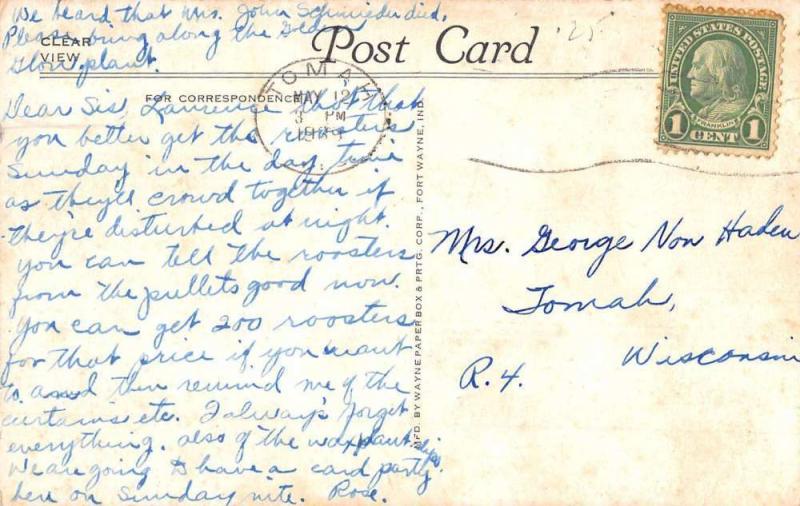 We heard that Mrs. John Schmieder died.
Please bring along the
plant.
CLEAR
VIEW
Post Card
'25
FOR CORRESPONDENCE
TOMAH
MAY 12
3 PM
UNITED STATES POSTAGE
FRANKLIN
1 CENT 1
Dear Sis, Lawrence that
you better get the roosters
Sunday in the day time
as they'll crowd together if
they're disturbed at night.
You can tell the roosters
from the pullets good now.
You can get 200 roosters
for that price if you want
to. and then remind me of the
curtains etc. I always forget
everything. also of the waxplant slips.
We are going to have a card party
here on Sunday nite. Rose.
MFD. BY WAYNE PAPER BOX & PRTG. CORP., FORT WAYNE, IND.
Mrs. George Von Haden
Tomah,
Wisconsin
R. 4.